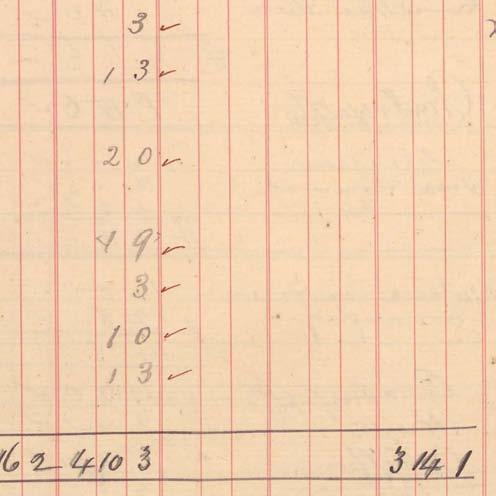 3 ✓
1 3 ✓
2 0 ✓
4 9 ✓
3 ✓
1 0 ✓
1 3 ✓
16 2 4 10 3 3 14 1